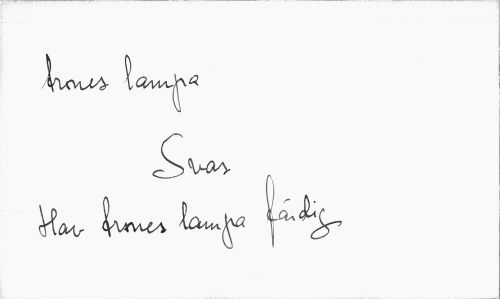 krones lampa
Svas
Hav krones lampa färdig